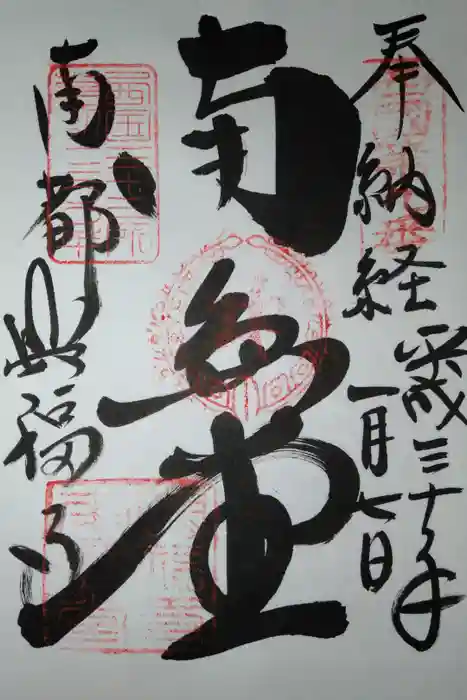 奉納経
平成三十年
一月七日
南円堂
南都
興福寺